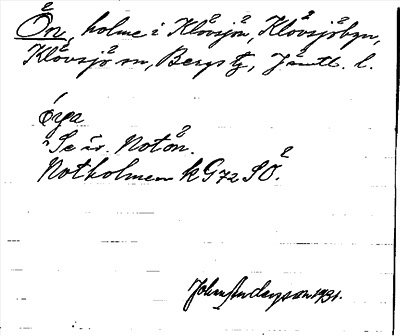 Ön, holme i Klövsjön, Klövsjöbyn,
Klövsjö sn, Bergs tg, Jämtl. l.
öɳa
Se äv. Notön.
Notholmen k G72 SÖ.
John Anderson 1931.